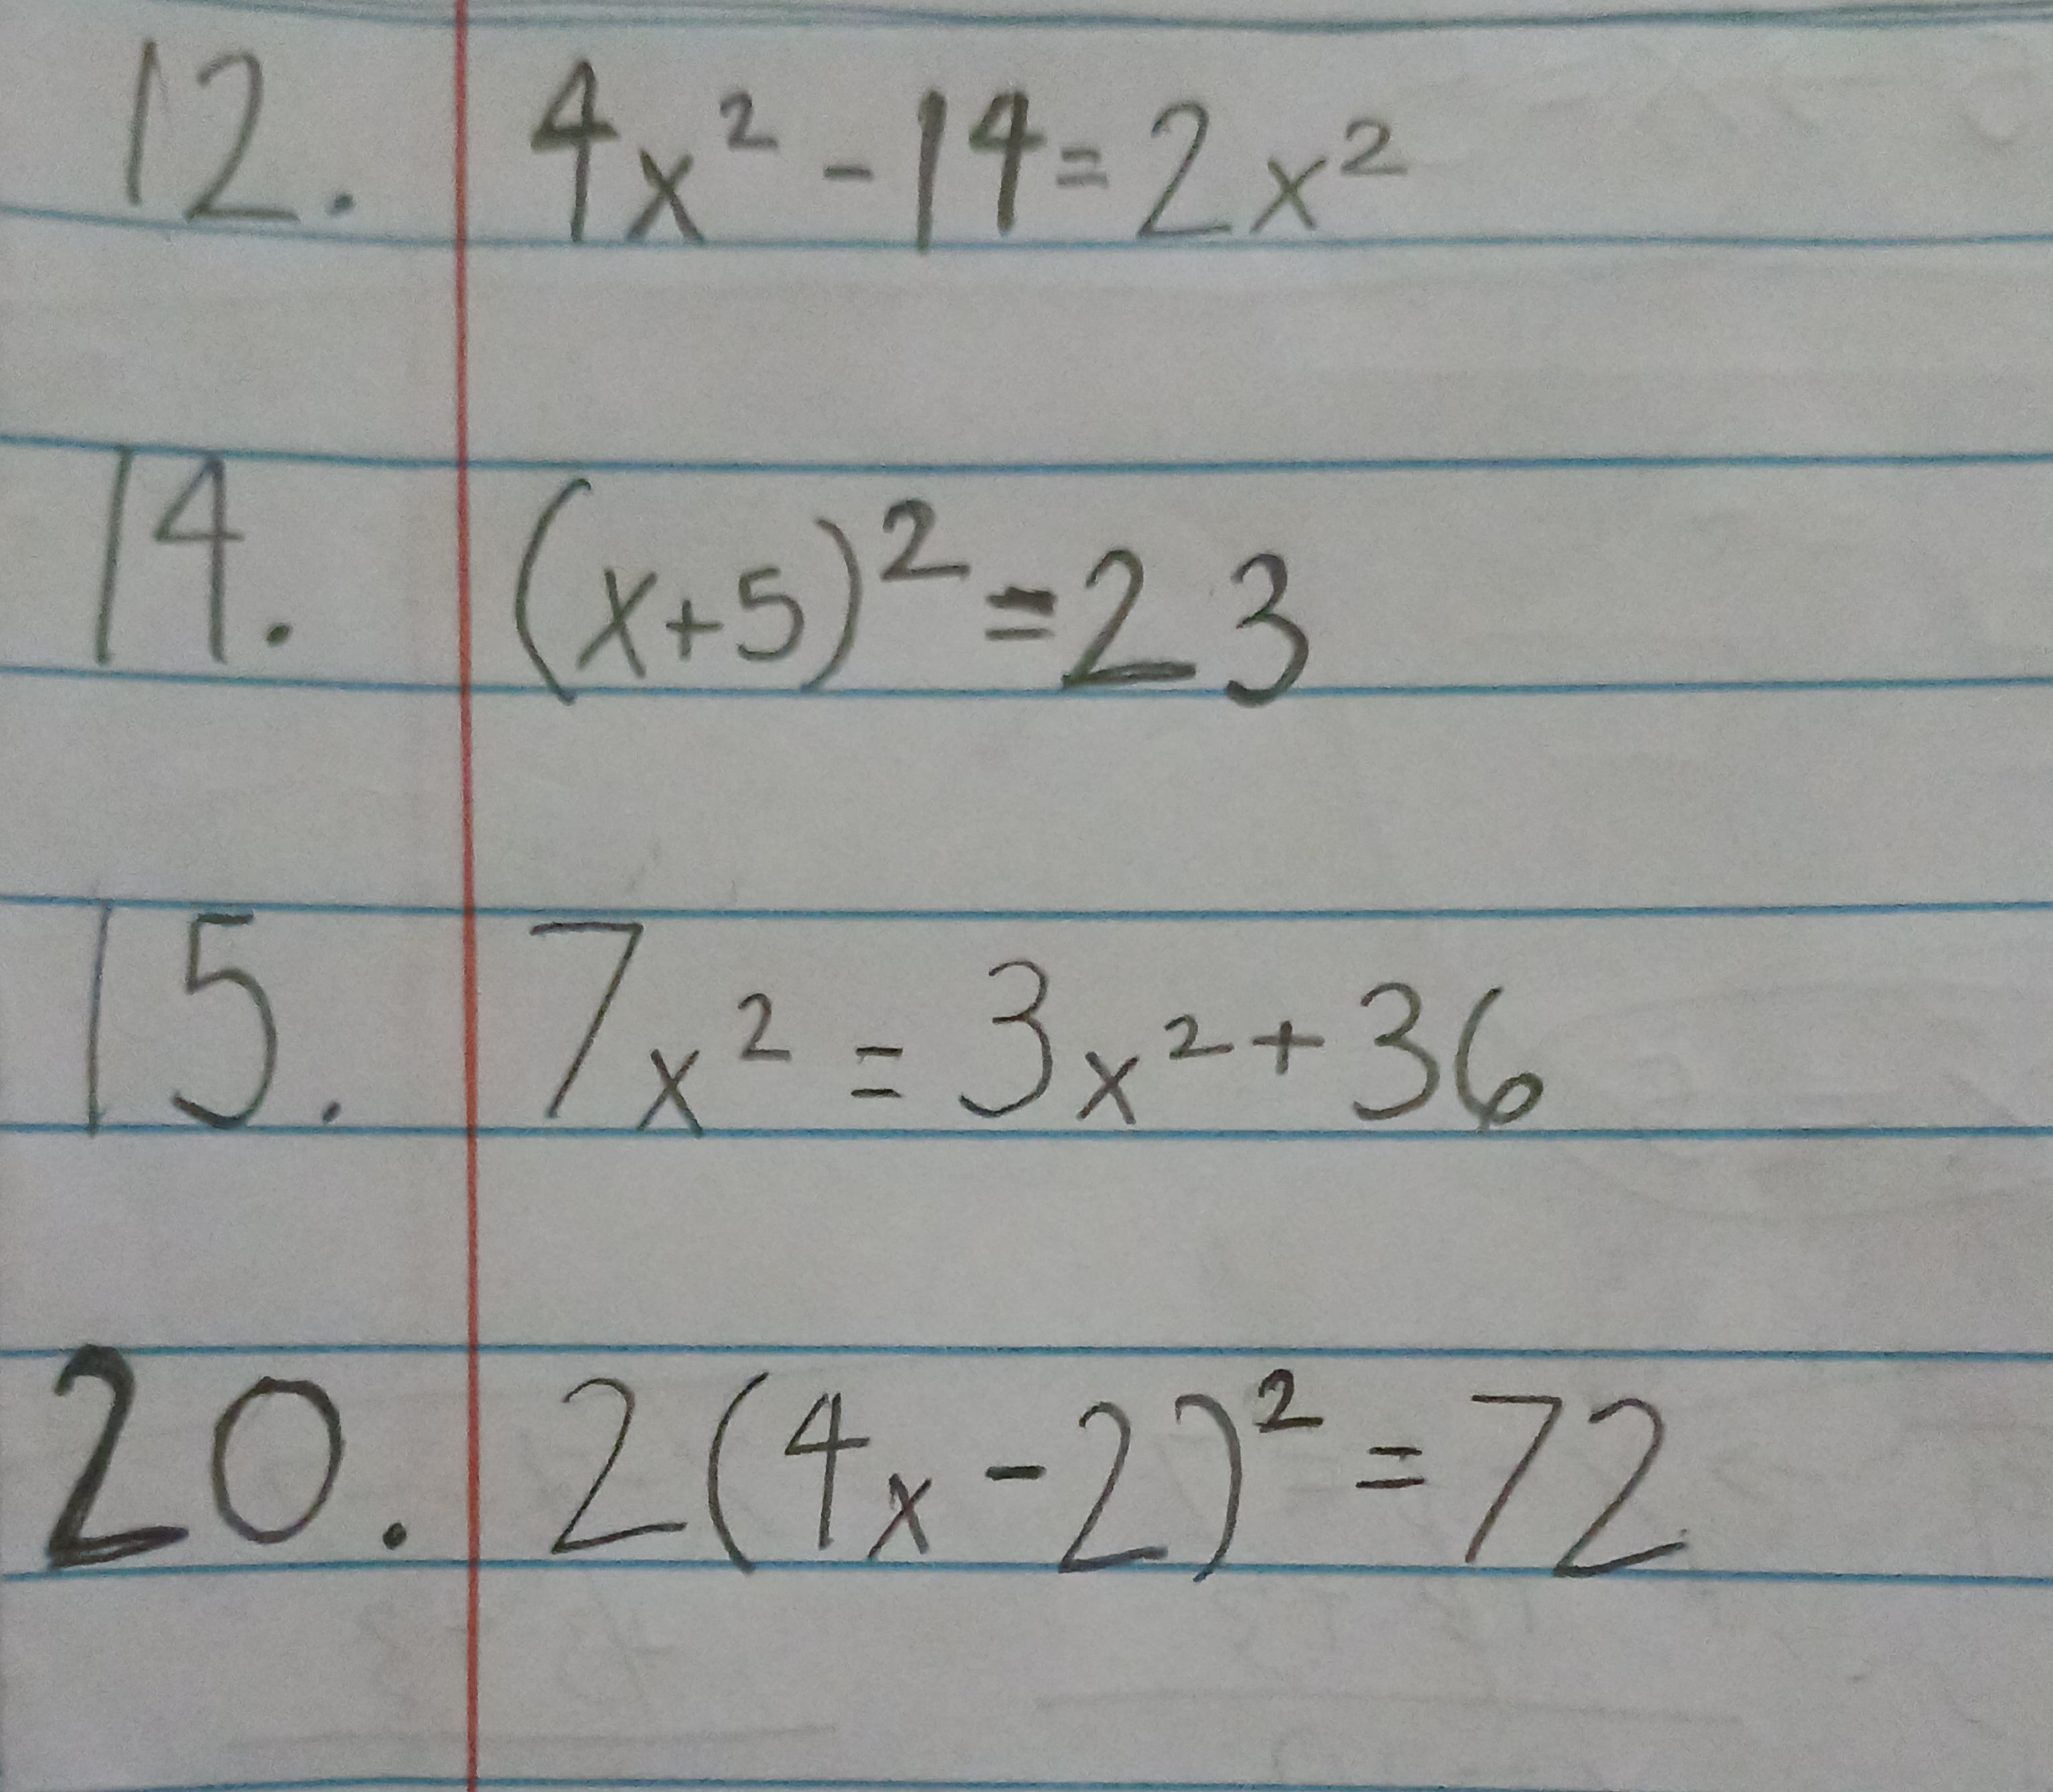 12. 4x² - 14 = 2x²
14. (x+5)² = 23
15. 7x² = 3x² + 36
20. 2(4x - 2)² = 72